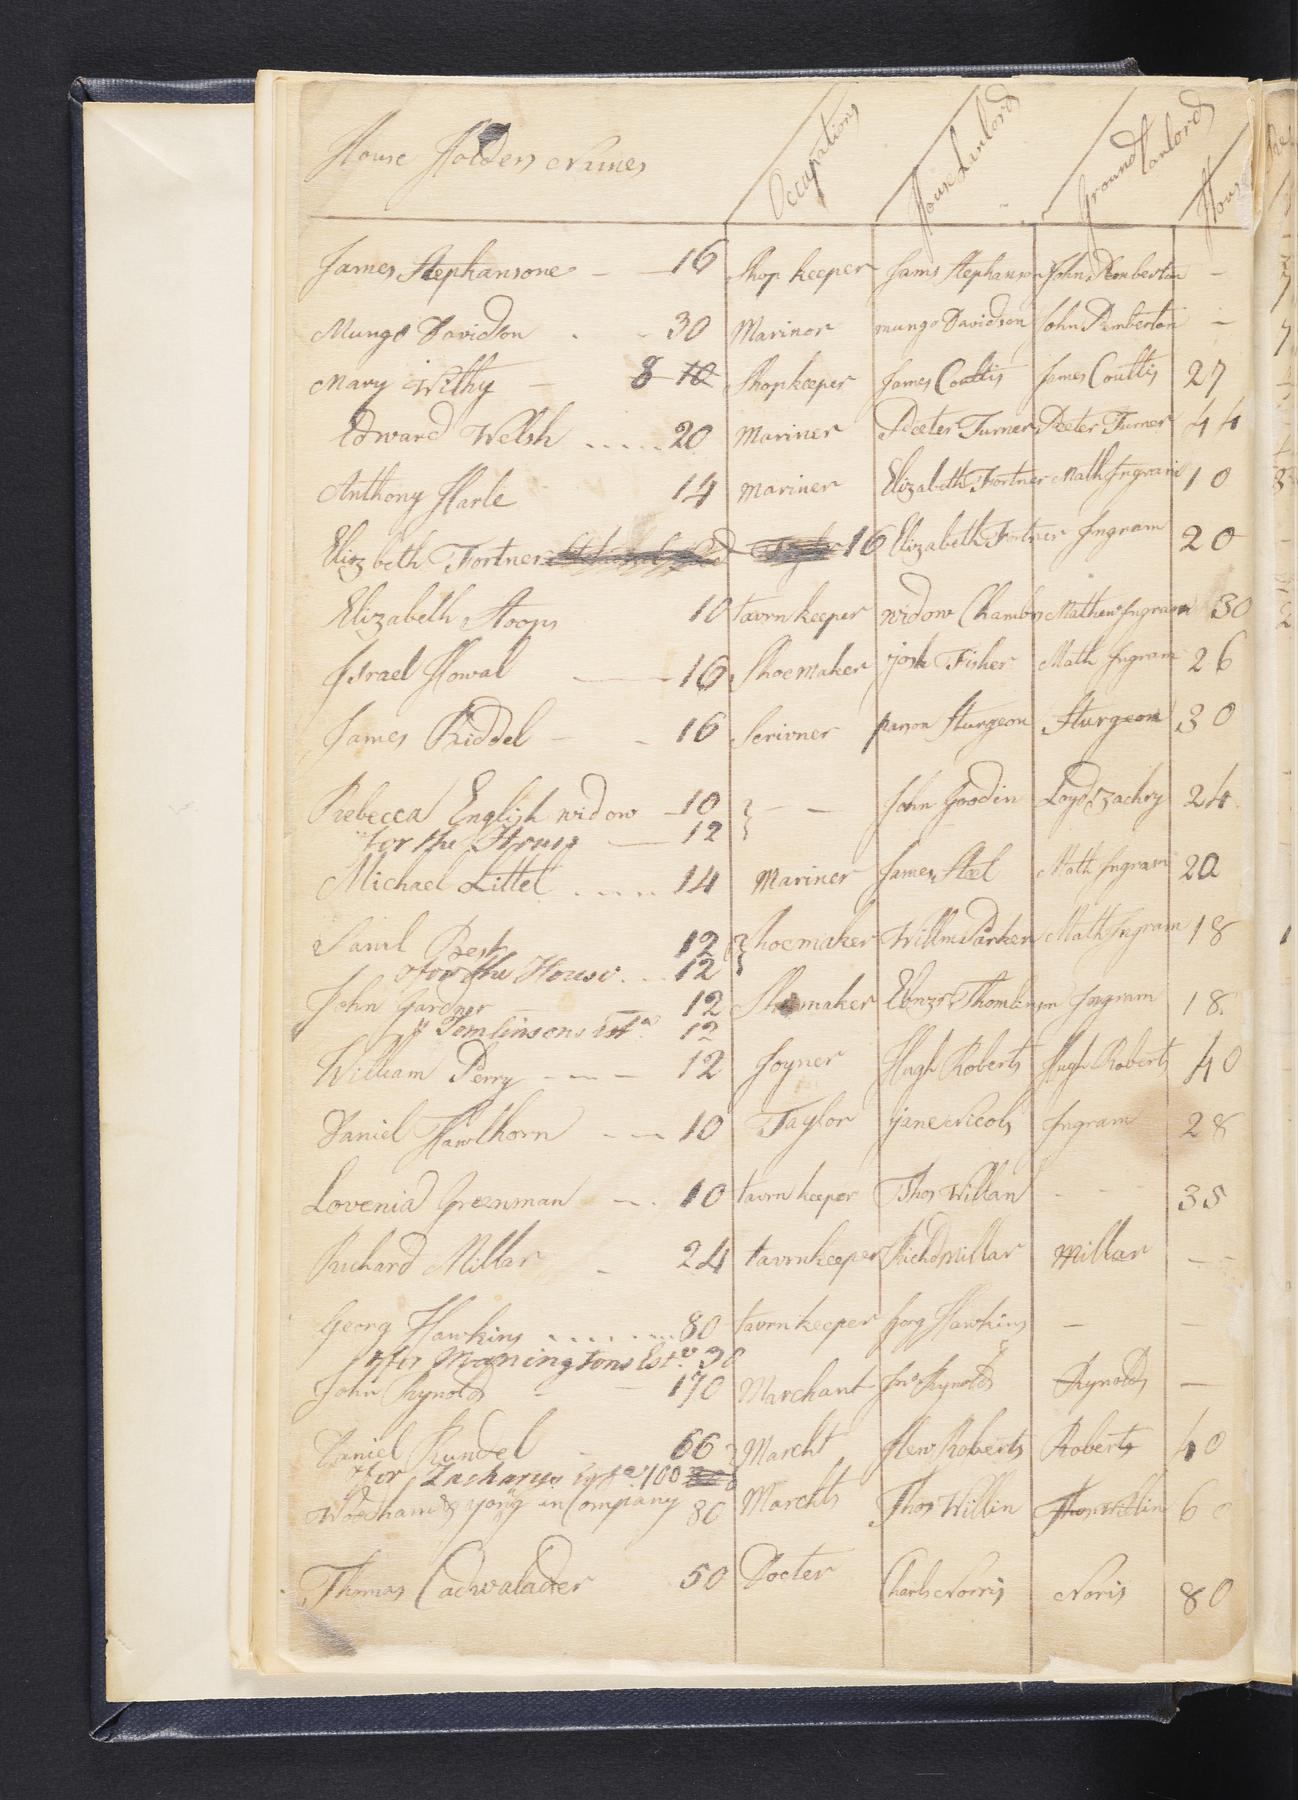 House Holders Names Occupations House Lanlords Ground Lanlords House
James Stephansone - - 16 Shop keeper Jams Stephanson John Pemberton -
Mungo Davidson . - 30 Marinor mungo Davidson John Pemberton -
Mary Withy - 8 10 Shopkeeper James Couttis James Couttis 27
Edward Welsh ..... 20 Mariner Peeter Turner Peeter Turner 44
Anthony Harle 14 mariner Elizabeth Fortner Math Ingram 10
Elizbeth Fortner 16 Elizabeth Fortner Ingram 20
Elizabeth Stoops 10 tavrn keeper widow Chambrs Mathew Ingram 30
Israel Howal - 16 Shoemaker josh Fisher Math Ingram 26
James Riddel - - 16 Scrivner parson Sturgeon Sturgeon 30
Rebecca English widow - 10 - - John Goodin Loyd Zachry 24
for the House - 12
Michael Littel .... 14 Mariner James Steel Math Ingram 20
Saml Best 12 Shoemaker Willm Parker Math Ingram 18
for the House .. 12
John Gardner 12 Shomaker Ebnzr Thomlinson Ingram 18
Tomlinsons Esta 12
William Perry - - - 12 Joyner Hugh Roberts Hugh Roberts 40
Daniel Hawthorn - - 10 Taylor jane Nicols Ingram 28
Lovenia Greenman - . 10 tavrn keeper Thos Willan - - - 35
Richard Millar - 24 tavrnkeeper Richd Millar Millar - -
Georg Hawkins ....... 80 tavrnkeeper Gorg Hawkins - -
for Maningtons Esta 30
John Rynolds - - 170 Marchant Jno Rynolds Rynolds -
Daniel Rundel - 66 Marcht Hew Roberts Roberts 40
for Zacharys Esta 100
Woodham & yong in Company 80 Marchts Thos Willin Thos Willin 60
Thomas Cadwalader 50 Docter Charls Norris Noris 80